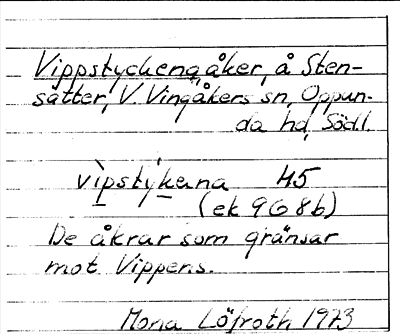 Vippstyckena, åker, å Sten-
sätter, V. Vingåkers sn, Oppun-
da hd, Södl.
vìpstýkena H5
(ek 9G8b)
De åkrar som gränsar
mot Vippens.
Mona Löfroth 1973